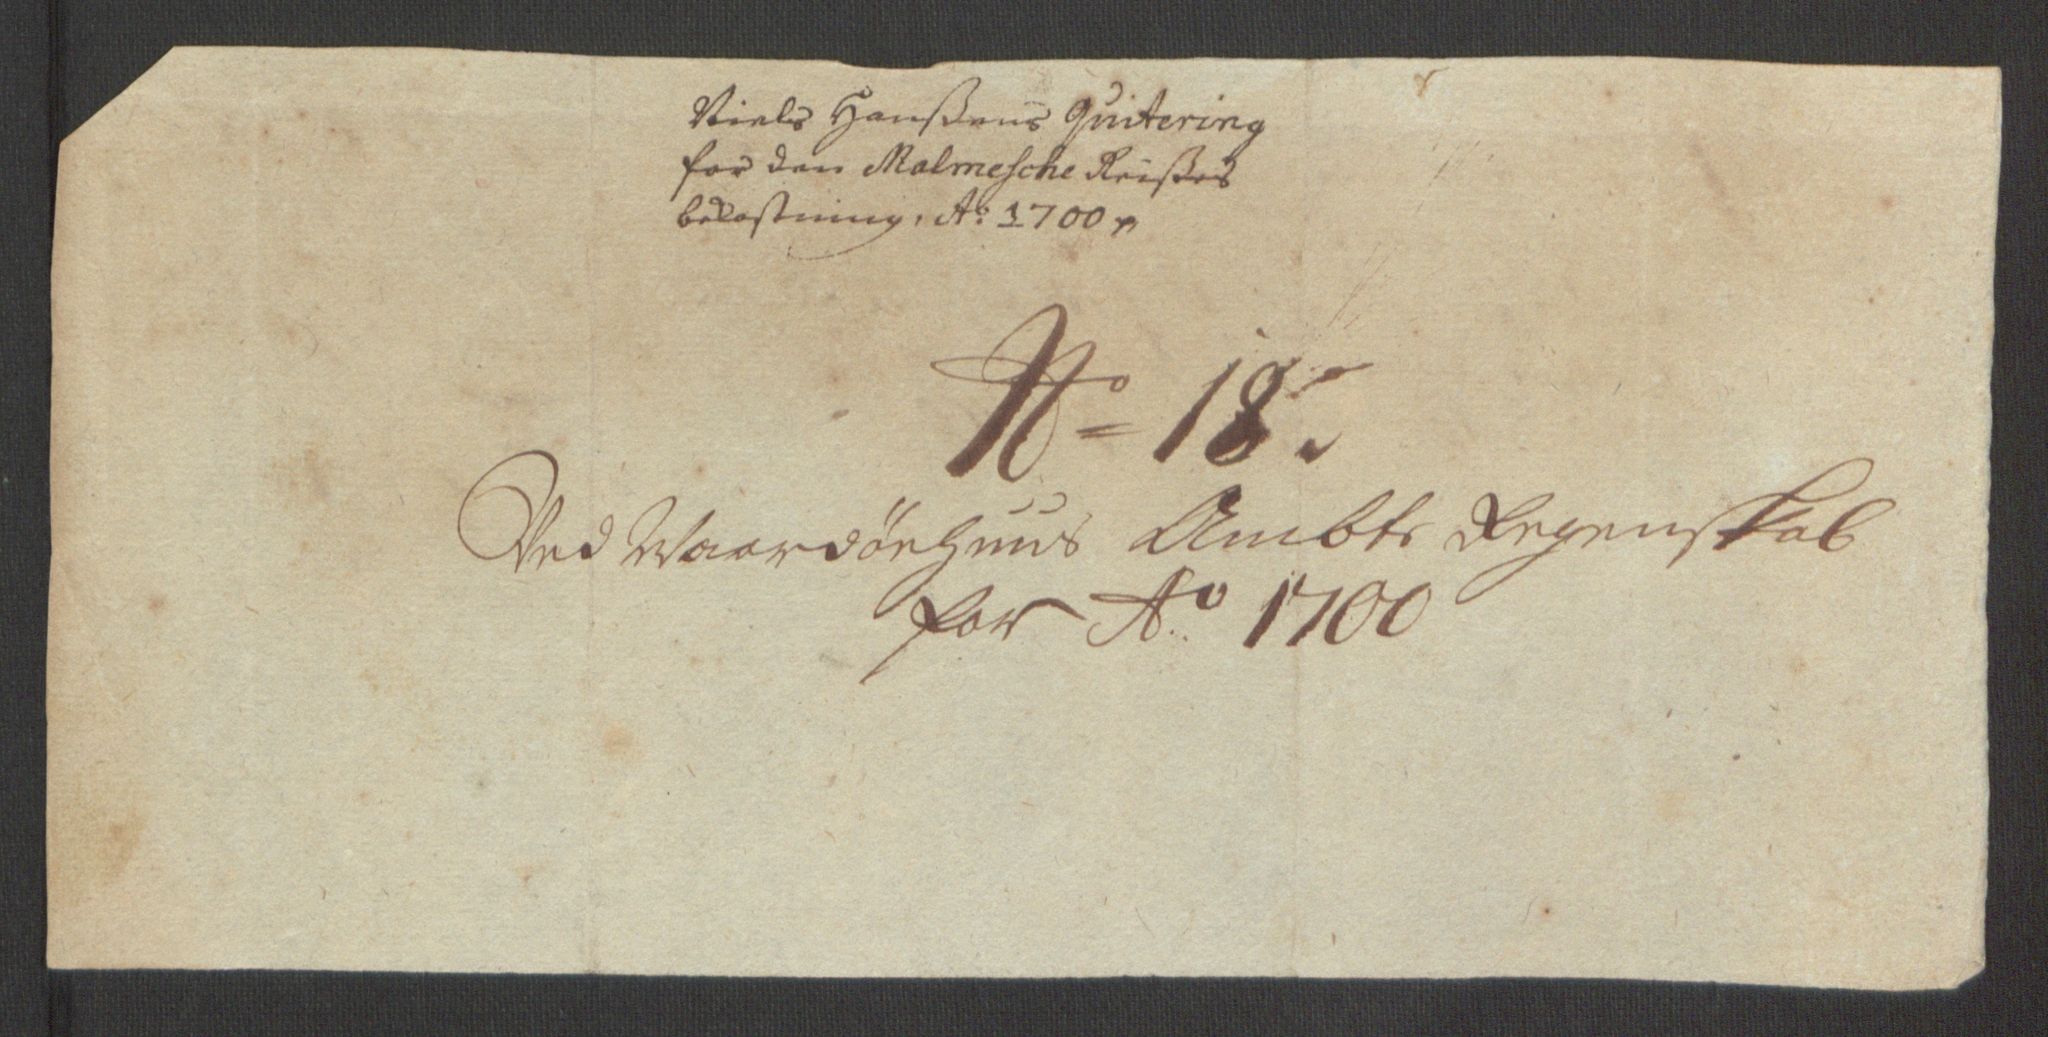 Niels Hanßens Quitering
for den Malmesche Reißes
bekostning, Ao: 1700 p
No = 18.
Ved Waardöehuus Ambts Regenskab
for Ao. 1700